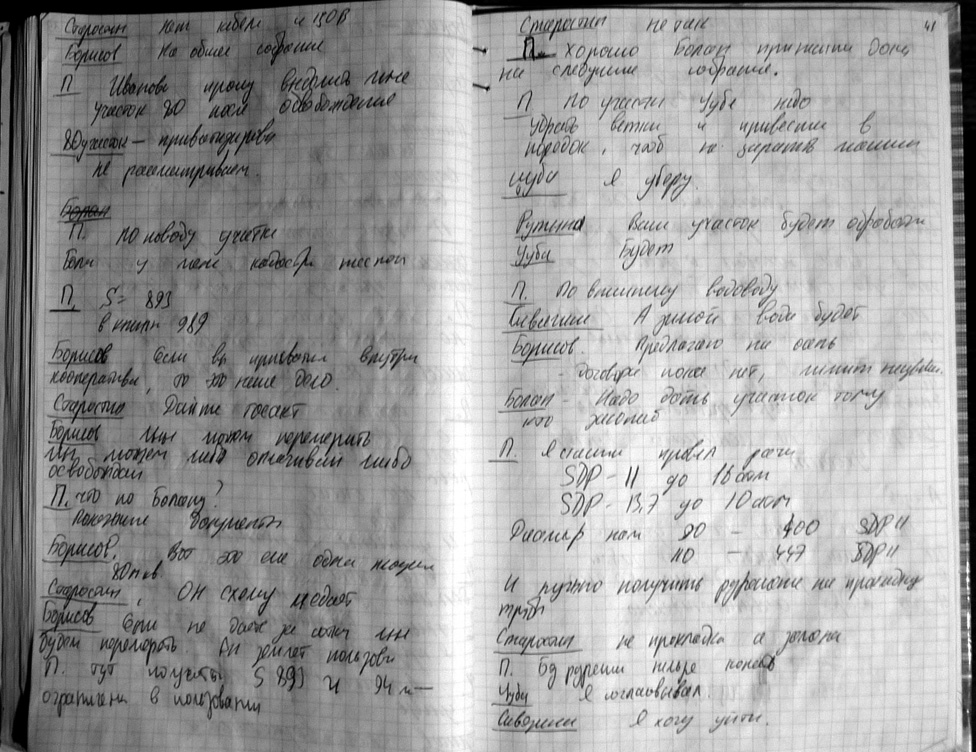 Старостин нет кабеля и 130 В
Борисов На общее собрание
П Иванова прошу выделить мне
участок 80 после освобождения
80 участок – приватизирован
не рассматриваем.
Болан
П. по поводу участка
Болан у меня кадастр паспорт
П. S = 893
в книги 989
Борисов Если вы прихватили внутри
кооператива, то это наше дело.
Старостин Дайте госакт
Борисов Мы можем перемерить
мы можем либо оплачивать либо
освобождать
П. что по Болану?
Покажите документы
Борисов. Вот это еще одна
Старостин, Он схему не дает
Борисов Если не даете за сотки мы
будем перемерять. Ан землей пользов
П. Тут получить S 893 и 94 м—
ограничена в пользовании
41
Старостин не так
П. Хорошо Болан принести док.
на следующие собрание.
П по участку Чуба надо
убрать ветки и привести в
порядок, чтоб не царапать машин
Чуба Я уберу.
Ваш участок будет обработан
Чуба Будет
П. По внешнему водоводу
А зимой вода будет
Борисов. Предлагаю на осень
- договора пока нет, лимит
Болан – Надо дать участок тому
кто желает
П. Я ставил провел расч
SDP – 11 до 16 атм
SDP - 13,7 до 10 атм
Диаметр нам 90 – 400 SDP 11
110 – 447 SDP 11
И нужно получить разрешение на прокладку
трубы
Старостин не прокладка а замена
П. без разреш нельзя копать
Чуба Я согласовывал.
Я хочу уйти.